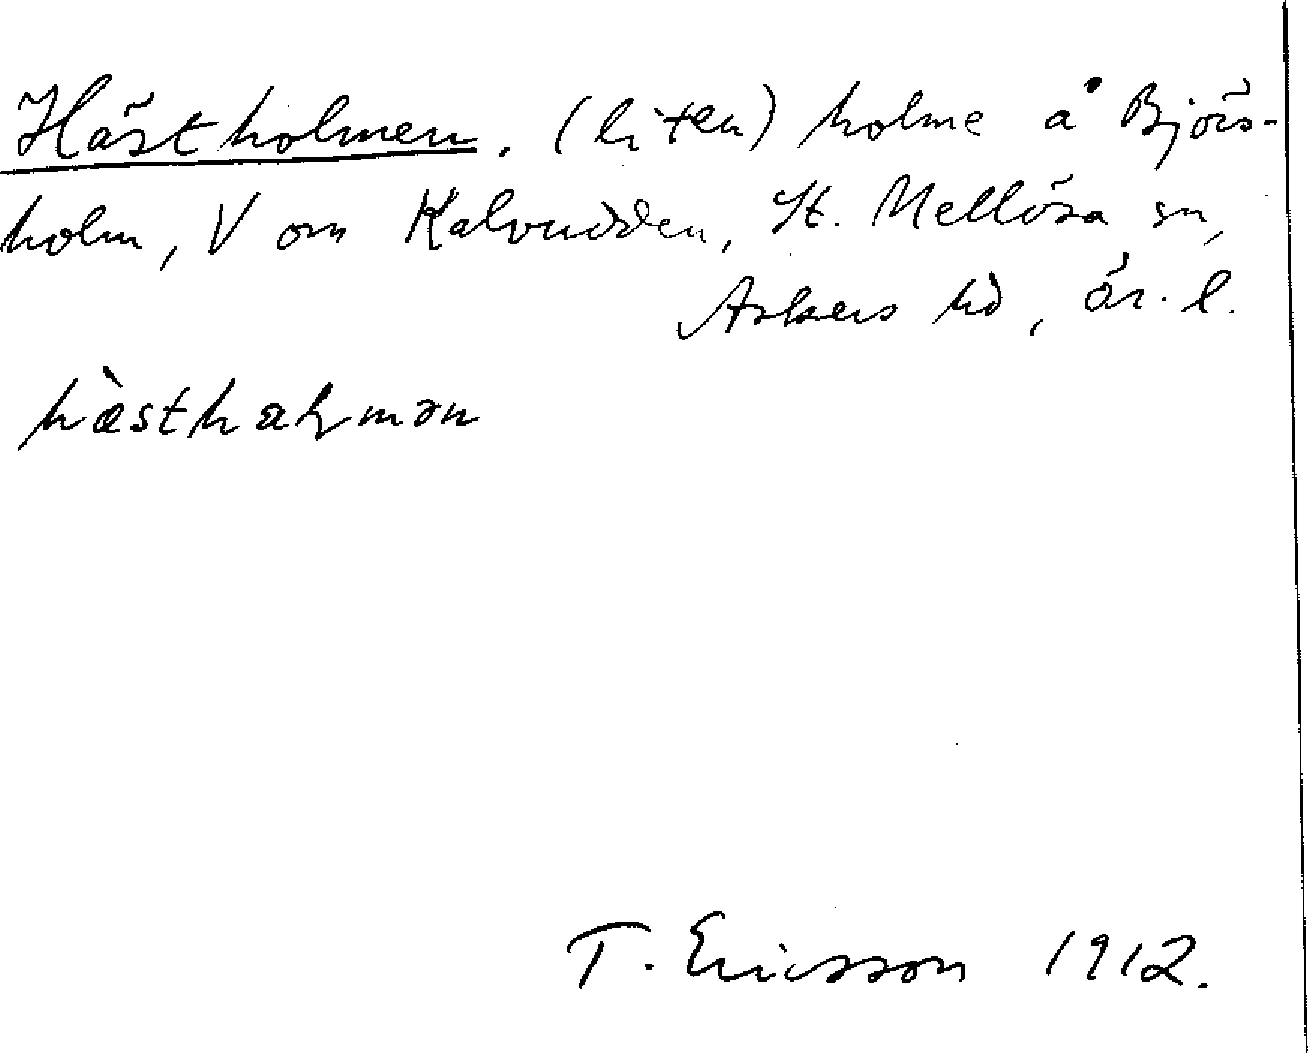 Hästholmen. (liten) holme å Björs-
holm, V om Kalvudden, St. Mellösa sn,
Askers hd, ör. l.
hästhaɫmən
T. Ericsson 1912.